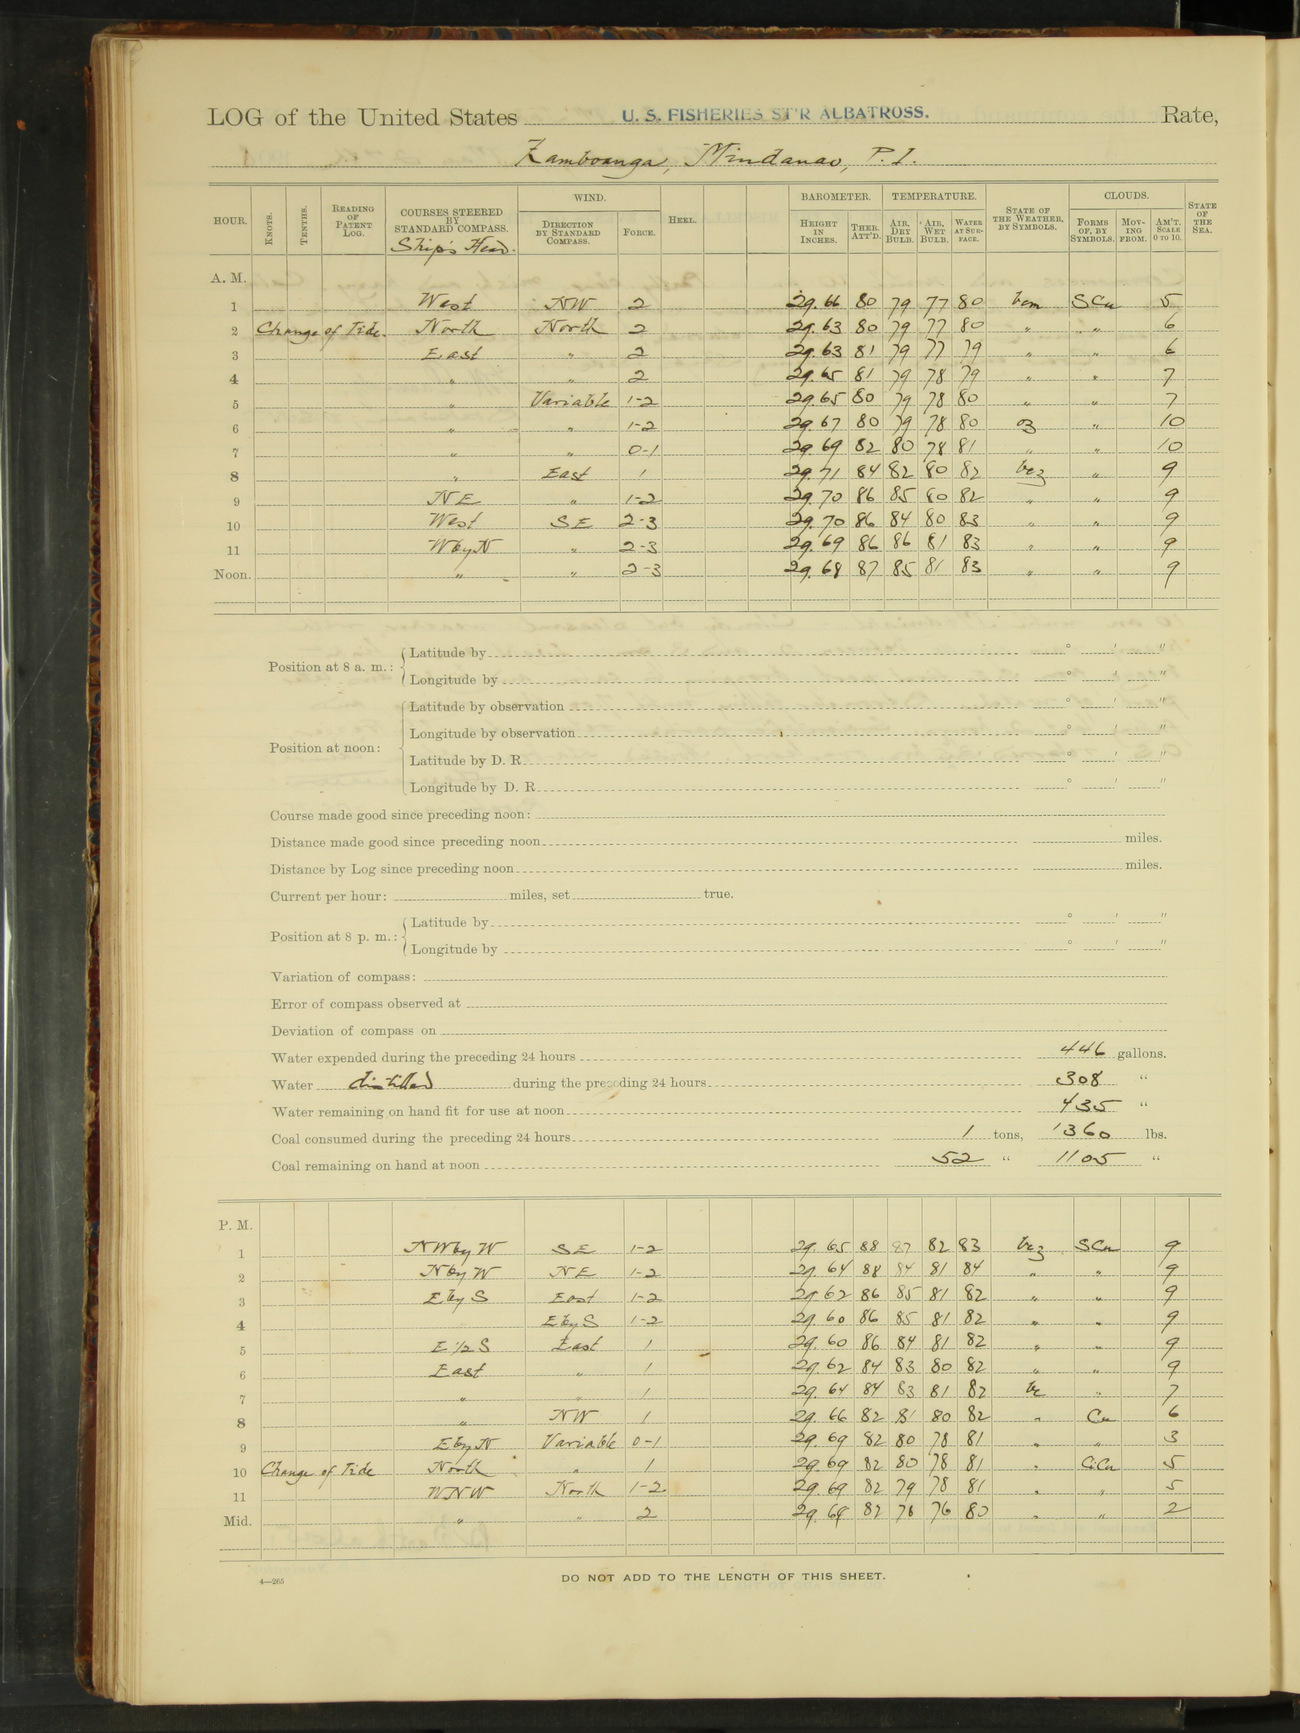 LOG of the United States U. S. FISHERIES ST'R ALBATROSS. Rate,
Zamboanga, Mindanao, P. I.
HOUR. KNOTS. TENTHS. READING OF PATENT LOG. COURSES STEERED BY STANDARD COMPASS. Ship's Head. WIND. DIRECTION BY STANDARD COMPASS. FORCE. HEEL. BAROMETER. HEIGHT IN INCHES. THER. ATT'D. TEMPERATURE. AIR, DRY BULB. AIR, WET BULB. WATER AT SURFACE. STATE OF THE WEATHER, BY SYMBOLS. CLOUDS. FORMS OF, BY SYMBOLS. MOVING FROM. AM'T. SCALE 0 TO 10. STATE OF THE SEA.
A. M.
1 West NW 2 29.66 80 79 77 80 bcm SCu 5
2 Change of Tide. North North 2 29.63 80 79 77 80 " " 6
3 East " 2 29.63 81 79 77 79 " " 6
4 " " 2 29.65 81 79 78 79 " " 7
5 " Variable 1-2 29.65 80 79 78 80 " " 7
6 " " 1-2 29.67 80 79 78 80 oz " 10
7 " " 0-1 29.69 82 80 78 81 " " 10
8 " East 1 29.71 84 82 80 82 bcz " 9
9 NE " 1-2 29.70 86 85 80 82 " " 9
10 West SE 2-3 29.70 86 84 80 83 " " 9
11 WbyN " 2-3 29.69 86 86 81 83 " " 9
Noon. " " 2-3 29.68 87 85 81 83 " " 9
Position at 8 a. m.: Latitude by ° ' "
Longitude by ° ' "
Position at noon: Latitude by observation ° ' "
Longitude by observation ° ' "
Latitude by D. R. ° ' "
Longitude by D. R. ° ' "
Course made good since preceding noon:
Distance made good since preceding noon miles.
Distance by Log since preceding noon miles.
Current per hour: miles, set true.
Position at 8 p. m.: Latitude by ° ' "
Longitude by ° ' "
Variation of compass:
Error of compass observed at
Deviation of compass on
Water expended during the preceding 24 hours 446 gallons.
Water distilled during the preceding 24 hours 308 "
Water remaining on hand fit for use at noon 435 "
Coal consumed during the preceding 24 hours 1 tons, 1360 lbs.
Coal remaining on hand at noon 52 " 1105 "
P. M.
1 NWbyW SE 1-2 29.65 88 87 82 83 bcz SCu 9
2 NbyW NE 1-2 29.64 88 84 81 84 " " 9
3 EbyS East 1-2 29.62 86 85 81 82 " " 9
4 EbyS 1-2 29.60 86 85 81 82 " " 9
5 E 1/2 S East 1 29.60 86 84 81 82 " " 9
6 East " 1 29.62 84 83 80 82 " " 9
7 " " 1 29.64 84 83 81 82 bc " 7
8 " NW 1 29.66 82 81 80 82 " Cu 6
9 EbyN Variable 0-1 29.69 82 80 78 81 " " 3
10 Change of Tide North " 1 29.69 82 80 78 81 " CiCu 5
11 WNW North 1-2 29.69 82 79 78 81 " " 5
Mid. " " 2 29.69 82 78 76 80 " " 2
4—265
DO NOT ADD TO THE LENGTH OF THIS SHEET.